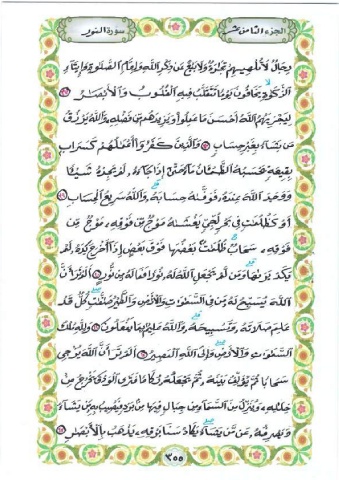 الجزء الثامن عشر
سورة النور
رِجَالٌ لَا تُلْهِيهِمْ تِجَارَةٌ وَلَا بَيْعٌ عَن ذِكْرِ اللَّهِ وَإِقَامِ الصَّلَوٰةِ وَإِيتَاءِ
الزَّكَوٰةِ يَخَافُونَ يَوْمًا تَتَقَلَّبُ فِيهِ الْقُلُوبُ وَالْأَبْصَٰرُ ٣٧
لِيَجْزِيَهُمُ اللَّهُ أَحْسَنَ مَا عَمِلُوا وَيَزِيدَهُم مِّن فَضْلِهِ وَاللَّهُ يَرْزُقُ
مَن يَشَاءُ بِغَيْرِ حِسَابٍ ٣٨ وَالَّذِينَ كَفَرُوا أَعْمَٰلُهُمْ كَسَرَابٍ
بِقِيعَةٍ يَحْسَبُهُ الظَّمْـَٔانُ مَاءً حَتَّىٰ إِذَا جَاءَهُ لَمْ يَجِدْهُ شَيْـًٔا
وَوَجَدَ اللَّهَ عِندَهُ فَوَفَّىٰهُ حِسَابَهُ وَاللَّهُ سَرِيعُ الْحِسَابِ ٣٩
أَوْ كَظُلُمَٰتٍ فِي بَحْرٍ لُّجِّيٍّ يَغْشَىٰهُ مَوْجٌ مِّن فَوْقِهِ مَوْجٌ مِّن
فَوْقِهِ سَحَابٌ ظُلُمَٰتٌ بَعْضُهَا فَوْقَ بَعْضٍ إِذَا أَخْرَجَ يَدَهُ لَمْ
يَكَدْ يَرَىٰهَا وَمَن لَّمْ يَجْعَلِ اللَّهُ لَهُ نُورًا فَمَا لَهُ مِن نُّورٍ ٤٠ أَلَمْ تَرَ أَنَّ
اللَّهَ يُسَبِّحُ لَهُ مَن فِي السَّمَٰوَٰتِ وَالْأَرْضِ وَالطَّيْرُ صَٰفَّٰتٍ كُلٌّ قَدْ
عَلِمَ صَلَاتَهُ وَتَسْبِيحَهُ وَاللَّهُ عَلِيمٌ بِمَا يَفْعَلُونَ ٤١ وَلِلَّهِ مُلْكُ
السَّمَٰوَٰتِ وَالْأَرْضِ وَإِلَى اللَّهِ الْمَصِيرُ ٤٢ أَلَمْ تَرَ أَنَّ اللَّهَ يُزْجِي
سَحَابًا ثُمَّ يُؤَلِّفُ بَيْنَهُ ثُمَّ يَجْعَلُهُ رُكَامًا فَتَرَى الْوَدْقَ يَخْرُجُ مِنْ
خِلَٰلِهِ وَيُنَزِّلُ مِنَ السَّمَاءِ مِن جِبَالٍ فِيهَا مِن بَرَدٍ فَيُصِيبُ بِهِ مَن يَشَاءُ
وَيَصْرِفُهُ عَن مَّن يَشَاءُ يَكَادُ سَنَا بَرْقِهِ يَذْهَبُ بِالْأَبْصَٰرِ ٤٣
٣٥٥